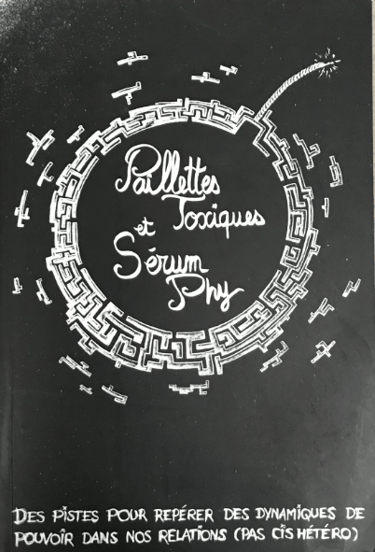 Paillettes
Toxiques
et
Sérum
Phy
DES PISTES POUR REPÉRER DES DYNAMIQUES DE
POUVOIR DANS NOS RELATIONS (PAS CIS HÉTÉRO)